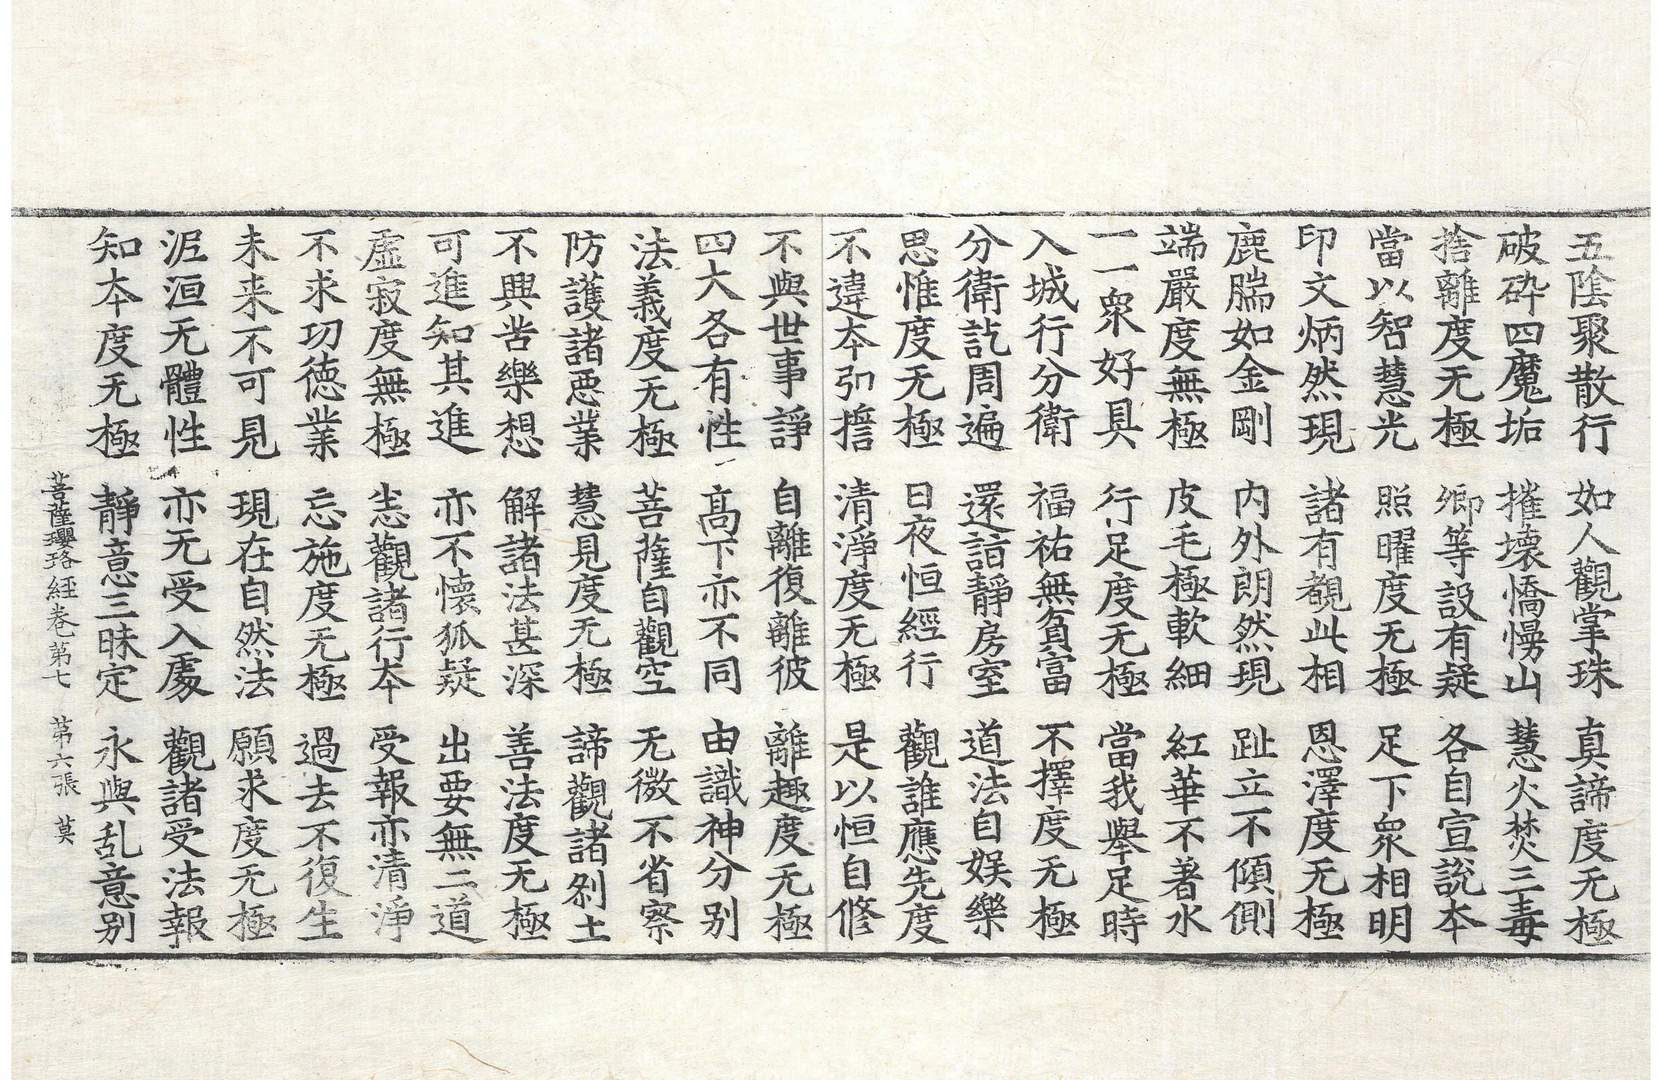 五陰聚散行 如人觀掌珠 真諦度无極
破碎四魔垢 摧壞憍慢山 慧火焚三毒
捨離度无極 卿等設有疑 各自宣說本
當以智慧光 照曜度无極 足下衆相明
印文炳然現 諸有覩此相 恩澤度无極
鹿腨如金剛 内外朗然現 趾立不傾側
端嚴度無極 皮毛極軟細 紅華不著水
一一衆好具 行足度无極 當我舉足時
入城行分衛 福祐無貧富 不擇度无極
分衛訖周遍 還詣靜房室 道法自娛樂
思惟度无極 日夜恒經行 觀誰應先度
不違本弘擔 清淨度无極 是以恒自修
不與世事諍 自離復離彼 離趣度无極
四大各有性 高下亦不同 由識神分别
法義度无極 菩薩自觀空 无微不省察
防護諸惡業 慧見度无極 諦觀諸剎土
不興苦樂想 解諸法甚深 善法度无極
可進知其進 亦不懷狐疑 出要無二道
虛寂度無極 恙觀諸行本 受報亦清淨
不求功德業 忘施度无極 過去不復生
未来不可見 現在自然法 願求度无極
泥洹无體性 亦无受入處 觀諸受法報
知本度无極 靜意三昧定 永與乱意别
菩薩瓔珞經卷第七 第六張 莫